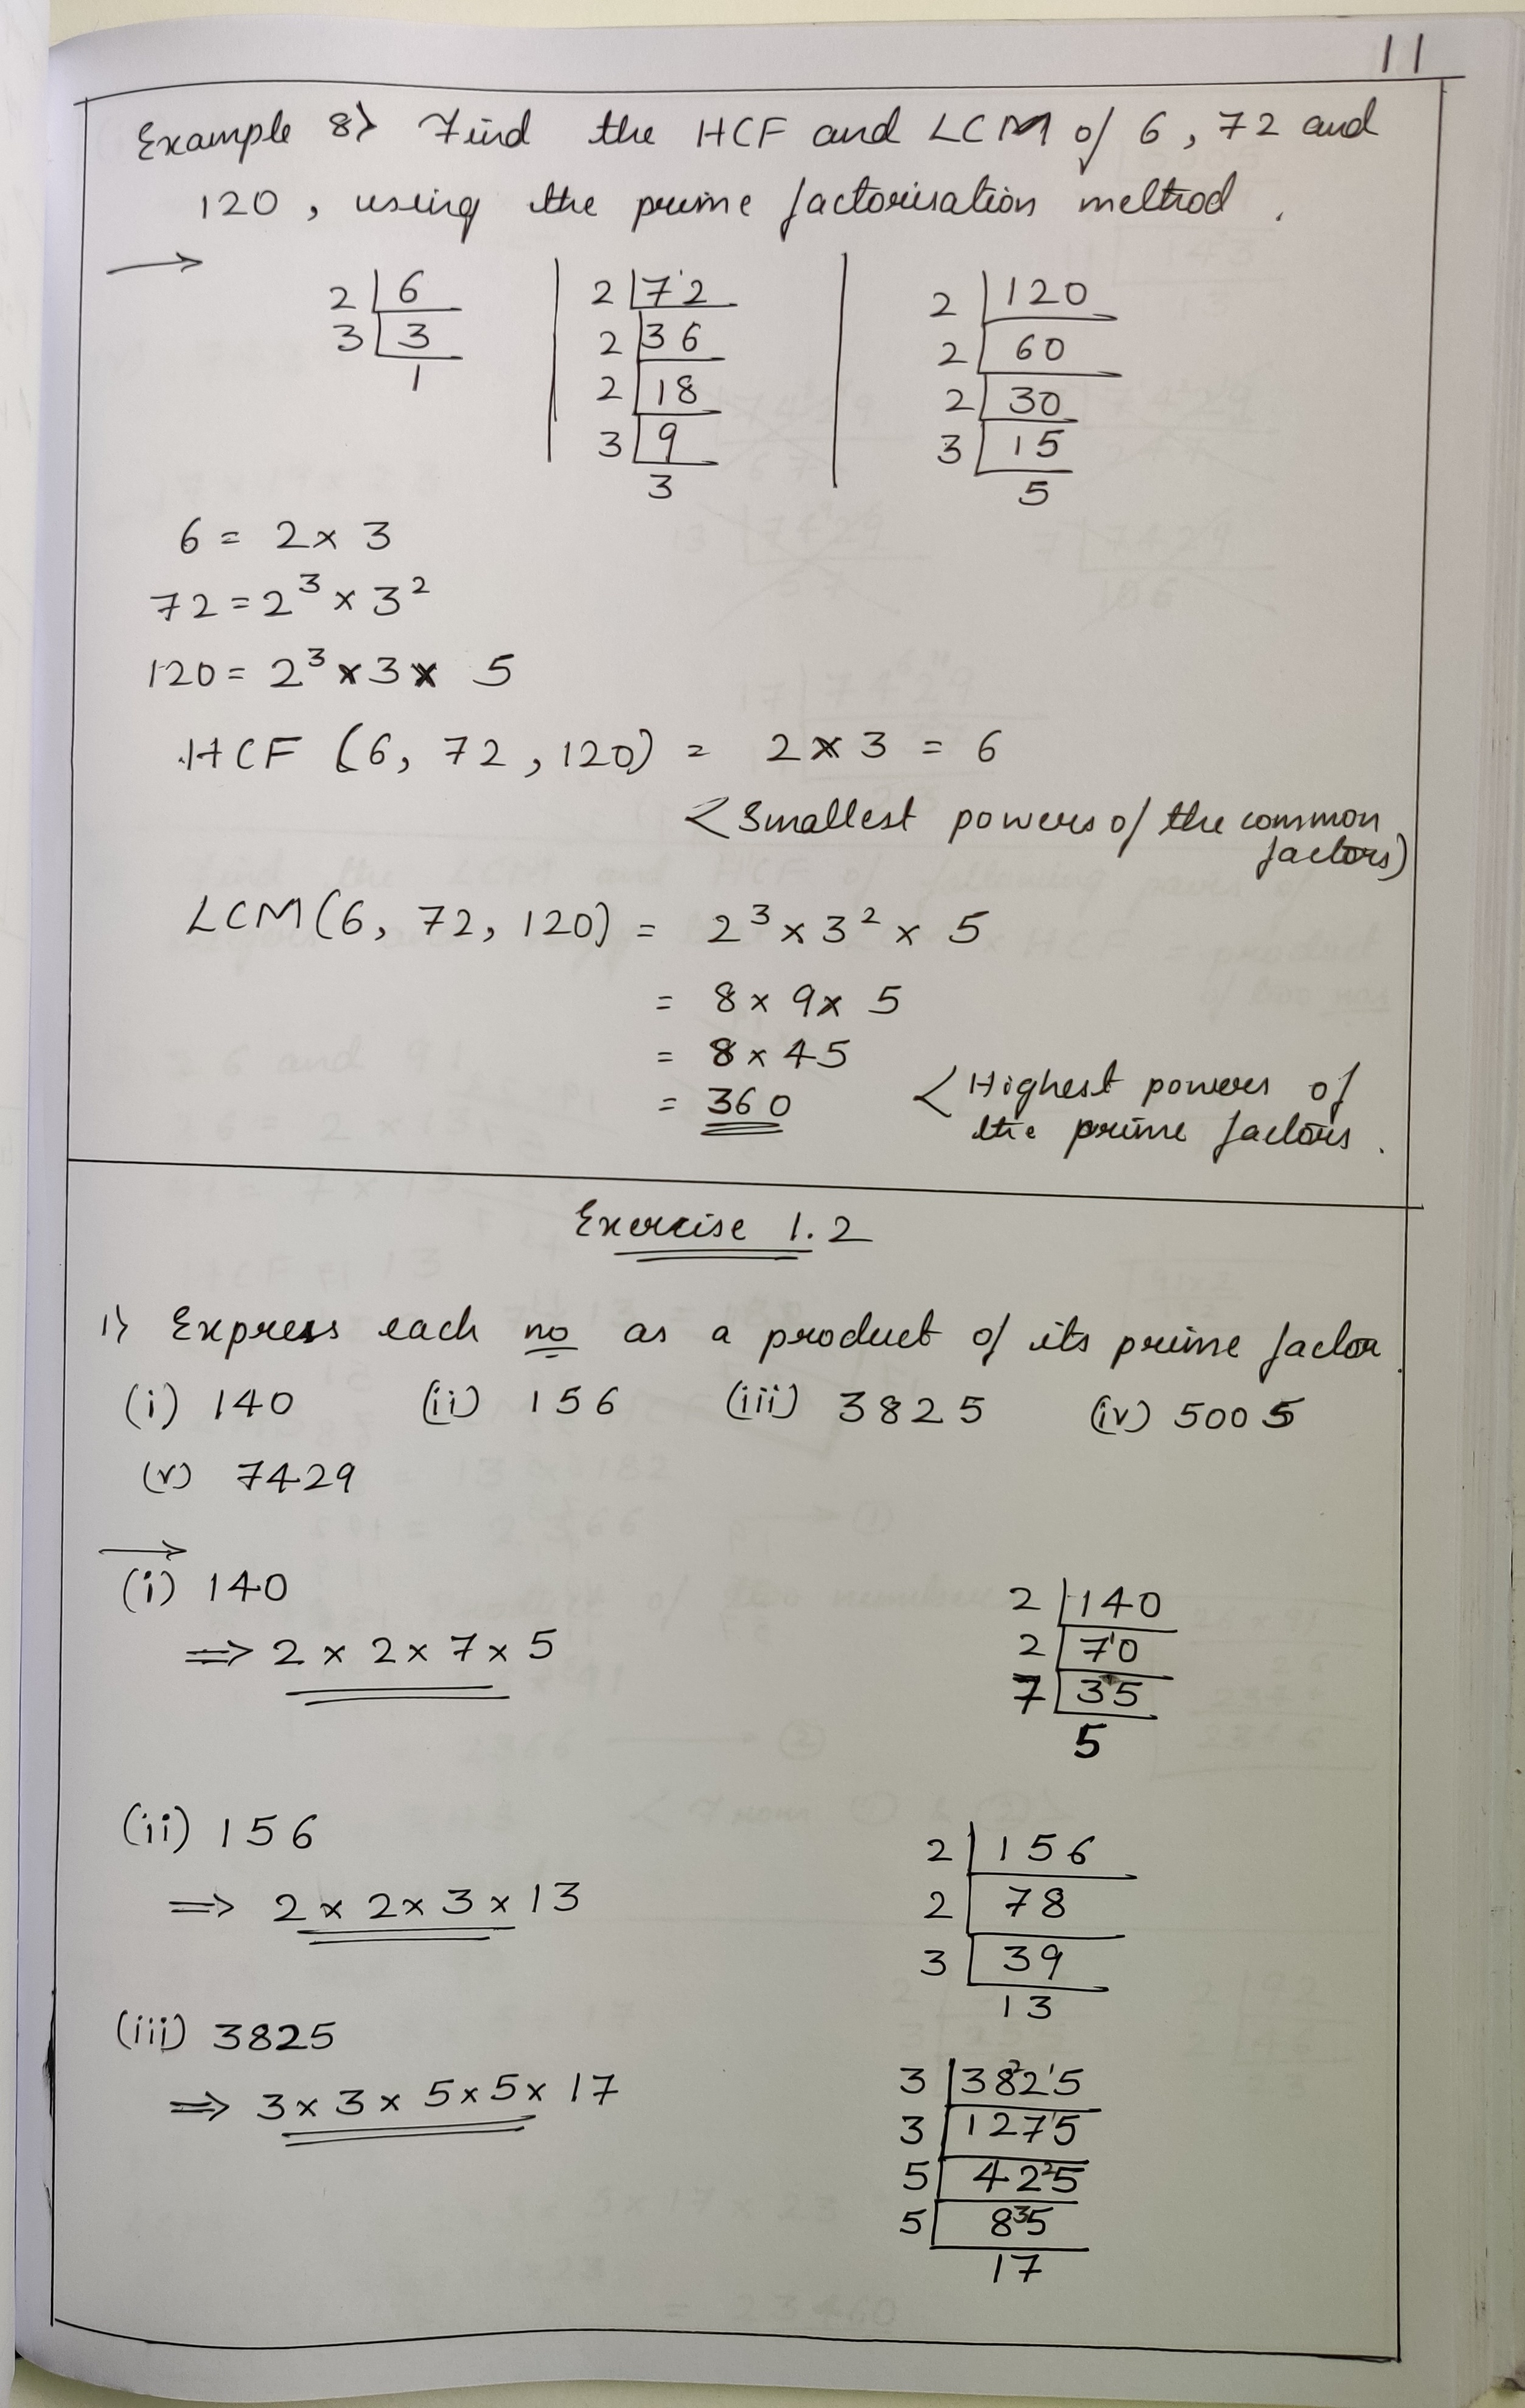 11
Example 8> Find the HCF and LCM of 6, 72 and
120, using the prime factorisation method.
2 | 6
3 | 3
1
2 | 72
2 | 36
2 | 18
3 | 9
3
2 | 120
2 | 60
2 | 30
3 | 15
5
6 = 2 x 3
72 = 2³ x 3²
120 = 2³ x 3 x 5
HCF (6, 72, 120) = 2 x 3 = 6
< Smallest powers of the common
factors)
LCM (6, 72, 120) = 2³ x 3² x 5
= 8 x 9 x 5
= 8 x 45
= 360
< Highest powers of
the prime factors.
Exercise 1.2
1> Express each no as a product of its prime factor.
(i) 140 (ii) 156 (iii) 3825 (iv) 5005
(v) 7429
(i) 140
⇒ 2 x 2 x 7 x 5
2 | 140
2 | 70
7 | 35
5
(ii) 156
⇒ 2 x 2 x 3 x 13
2 | 156
2 | 78
3 | 39
13
(iii) 3825
⇒ 3 x 3 x 5 x 5 x 17
3 | 3825
3 | 1275
5 | 425
5 | 85
17